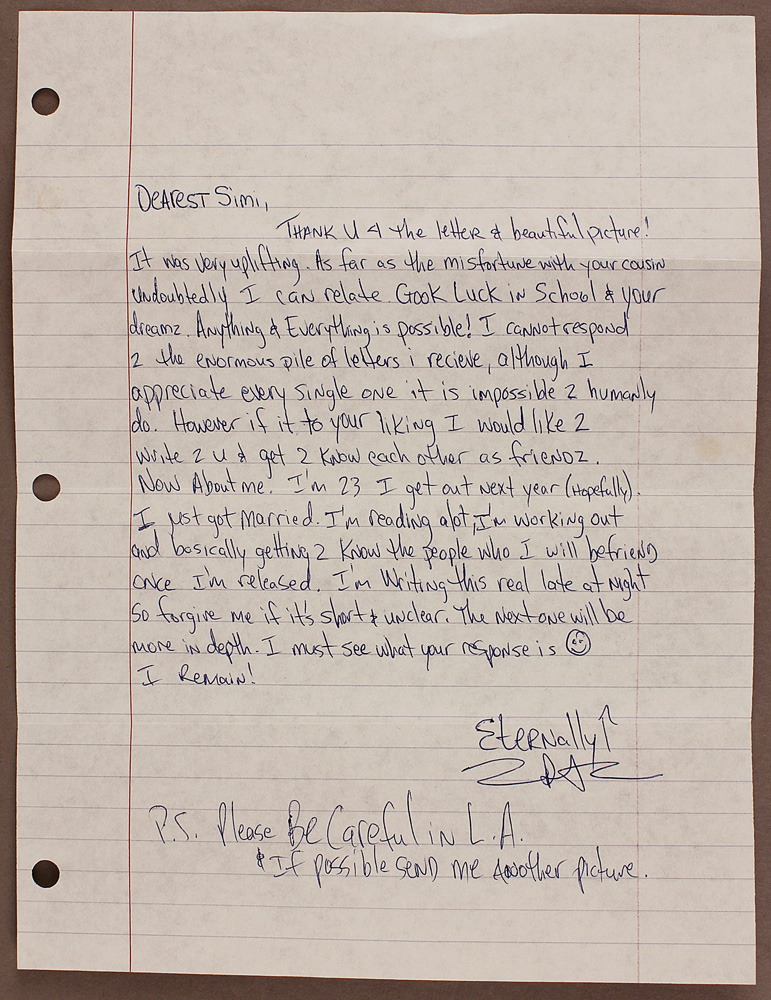 Dearest Simi,
Thank U 4 the letter & beautiful picture!
It was very uplifting. As far as the misfortune with your cousin
undoubtedly I can relate. Gook Luck in School & your
dreamz. Anything & Everything is possible! I cannot respond
2 the enormous pile of letters i recieve, although I
appreciate every single one it is impossible 2 humanly
do. However if it to your liking I would like 2
write 2 u & get 2 know each other as friendz.
Now About me. I'm 23 I get out next year (Hopefully).
I just got married. I'm reading alot, I'm working out
and basically getting 2 know the people who I will befriend
once I'm released. I'm Writing this real late at night
So forgive me if it's short & unclear. The next one will be
more in depth. I must see what your response is
I Remain!
Eternally
P.S. Please Be Careful in L.A.
& If possible send me another picture.